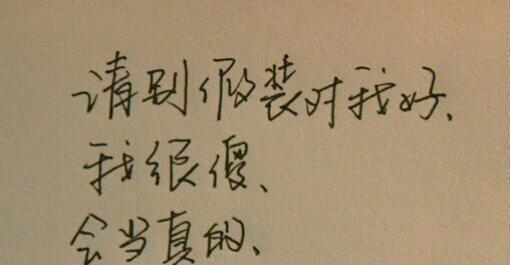 请别假装对我好、
我很傻、
会当真的、